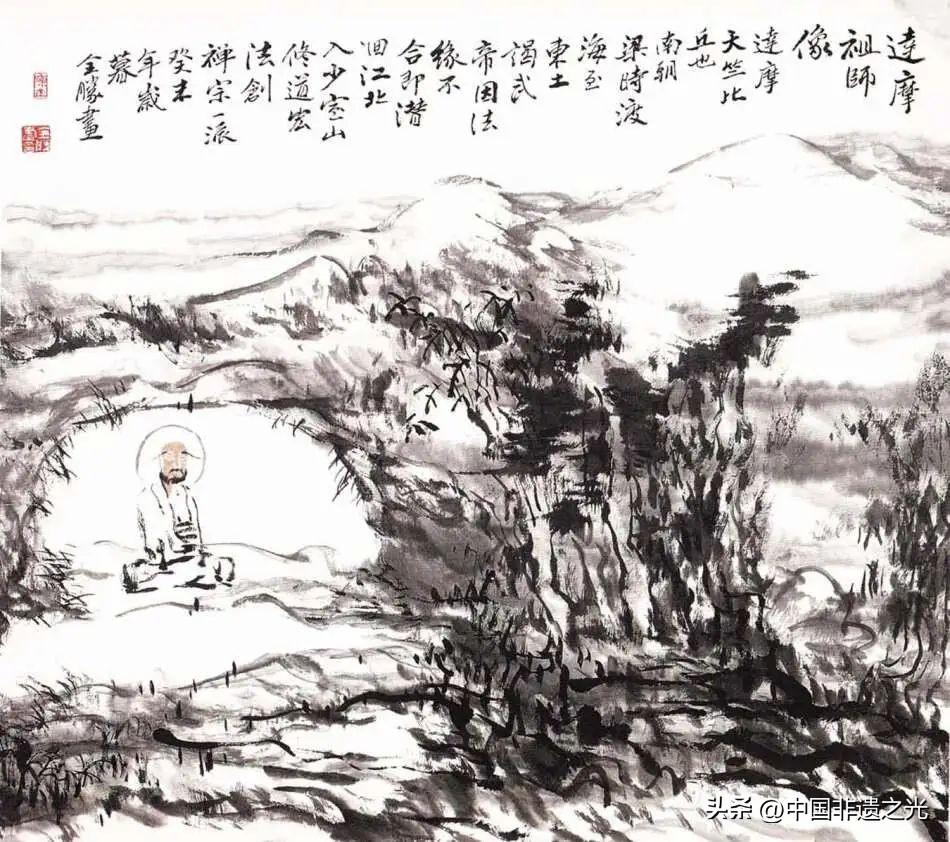 達摩
祖師
像
達摩
天竺比
丘也
南朝
梁時渡
海至
東土
謁武
帝因法
緣不
合即潜
洄江北
入少室山
修道宏
法創
禅宗一派
癸未
年歲
暮
全勝畫
头条 @中国非遗之光